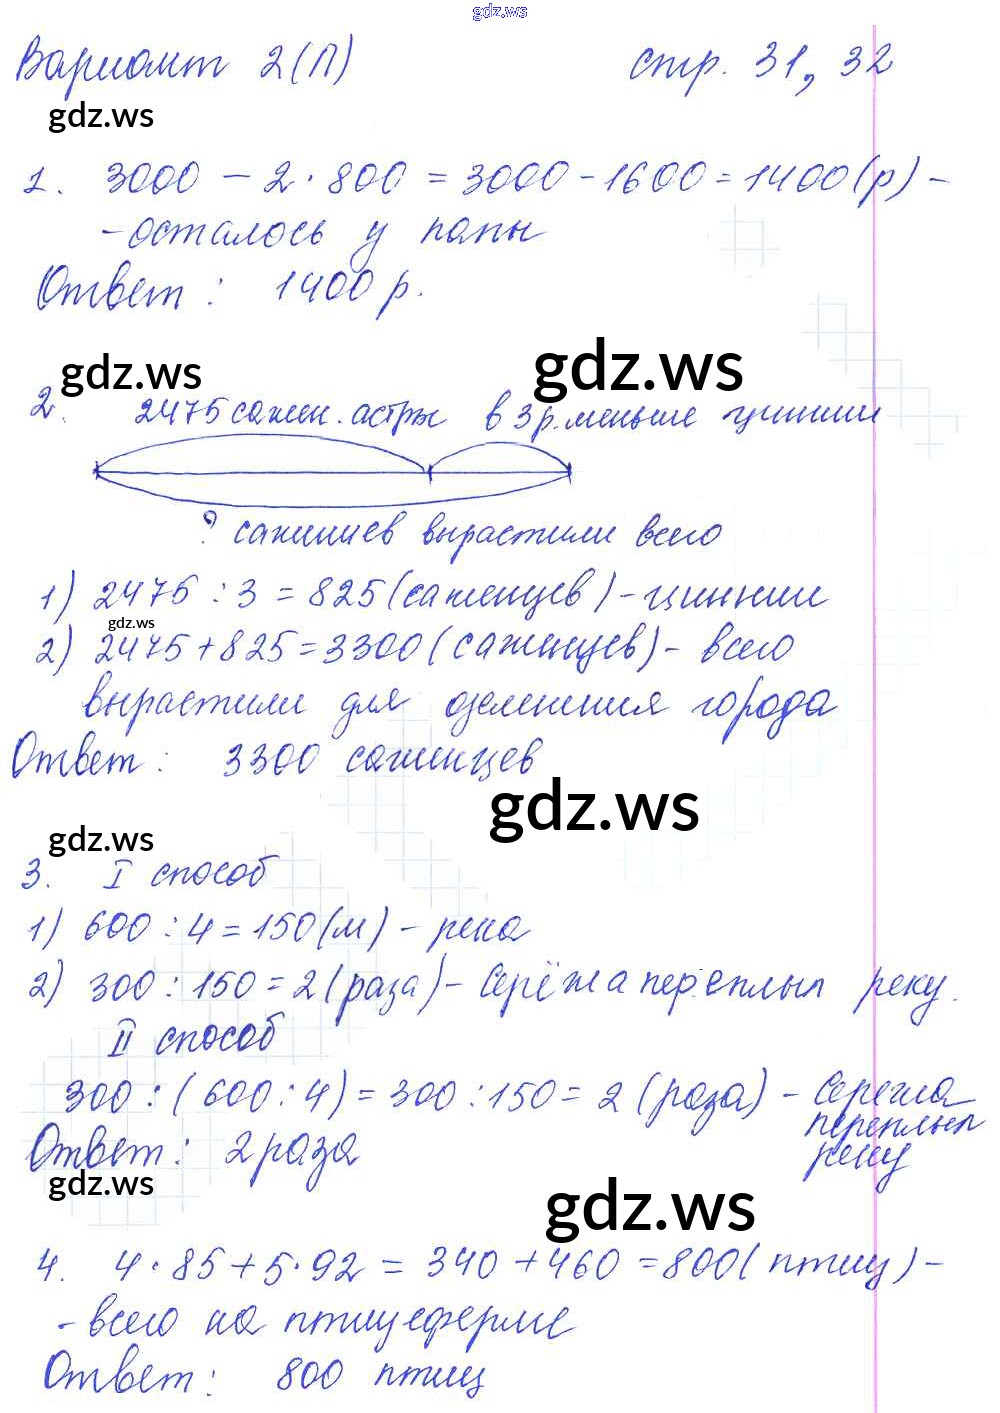 gdz.ws
Вариант 2(П) стр. 31, 32
gdz.ws
1. 3000 - 2·800 = 3000 - 1600 = 1400 (р) -
- осталось у папы
Ответ: 1400 р.
gdz.ws gdz.ws
2. 2475 сажен. астры в 3 р. меньше циннии
? саженцев вырастили всего
1) 2475 : 3 = 825 (саженцев) - циннии
gdz.ws
2) 2475 + 825 = 3300 (саженцев) - всего
вырастили для озеленения города
Ответ: 3300 саженцев
gdz.ws
gdz.ws
3. I способ
1) 600 : 4 = 150 (м) - река
2) 300 : 150 = 2 (раза) - Серёжа переплыл реку.
II способ
300 : (600 : 4) = 300 : 150 = 2 (раза) - Сережа
переплыл
Ответ: 2 раза реку
gdz.ws
gdz.ws
4. 4·85 + 5·92 = 340 + 460 = 800 (птиц) -
- всего на птицеферме
Ответ: 800 птиц